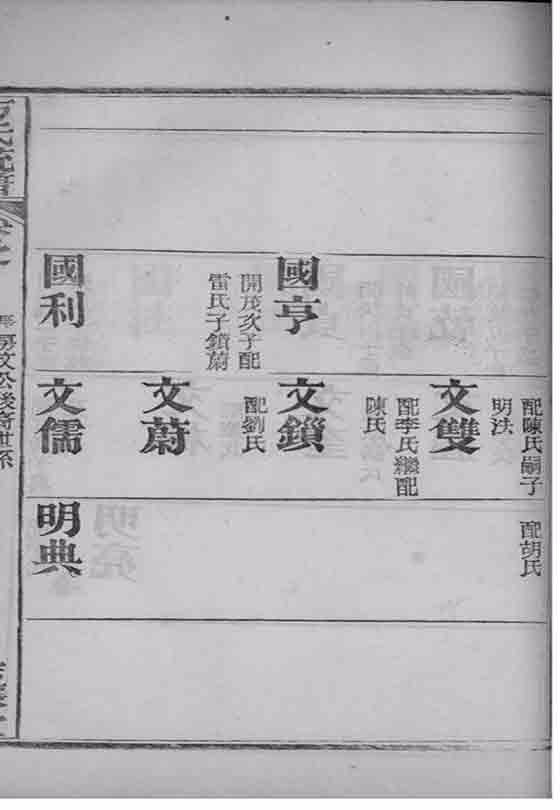 配陳氏嗣子
明法
配胡氏
文雙
配李氏繼配
陳氏
國亨
開茂次子配
雷氏子鎖蔚
文鎖
配劉氏
文蔚
國利
文儒
明典
房文公後裔世系